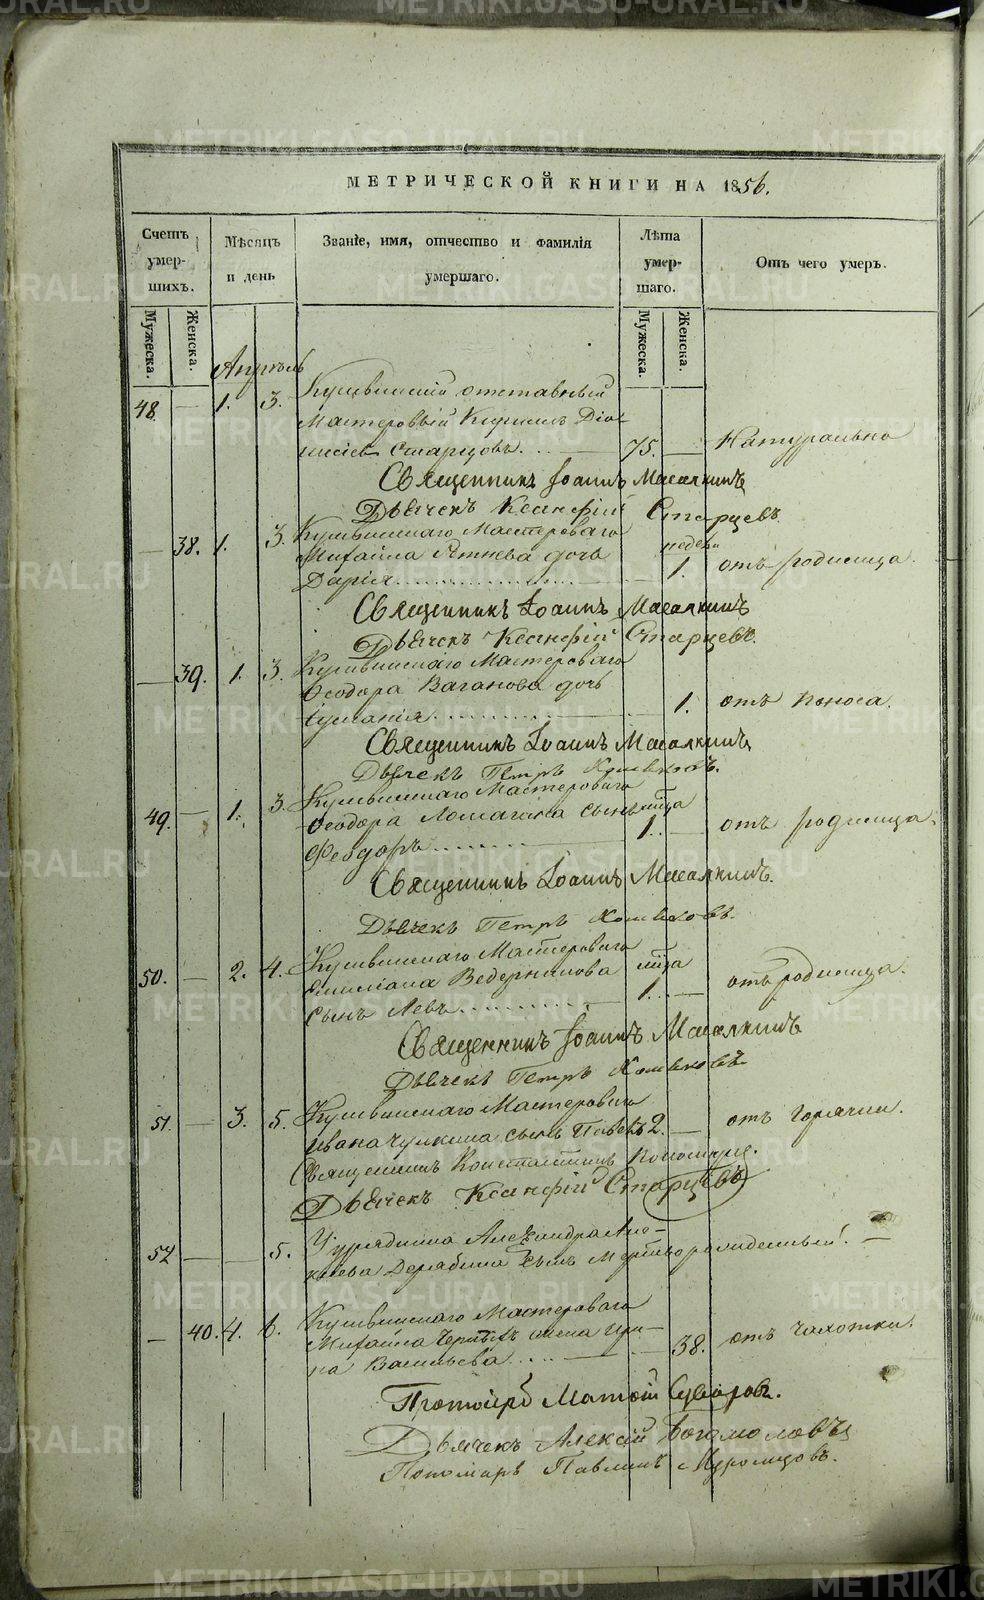 METRIKI.GASO-URAL.RU
МЕТРИЧЕСКОЙ КНИГИ НА 1856.
Счетъ умершихъ.
Мѣсяцъ и день
Званіе, имя, отчество и фамилія умершаго.
Лѣта умершаго.
Отъ чего умеръ.
Мужеска. Женска. Мужеска. Женска.
Апрѣль
48 — 1. 3. Кушвинскій отставный
Мастеровый Кирилъ Діо-
нисіев Старцовъ. 75. — Натурально
Священникъ Іоаннъ Масалкинъ
Дьячекъ Ксанфій Старцевъ
— 38. 1. 3. Кушвинскаго Мастероваго
Михаила дочь недели
Дарія 1. отъ родимца.
Священникъ Іоаннъ Масалкинъ
Дьячекъ Ксанфій Старцевъ.
— 39. 1. 3. Кушвинскаго Мастероваго
Ѳеодора Ваганова дочь
Іуліанія 1. отъ поноса.
Священникъ Іоаннъ Масалкинъ
Дьячекъ Петръ Хомяковъ.
49. — 1. 3. Кушвинскаго Мастероваго
Ѳеодора сынъ мѣца
Феодоръ 1. — отъ родимца.
Священникъ Іоаннъ Масалкинъ.
Дьячекъ Петръ Хомяковъ.
50. — 2. 4. Кушвинскаго Мастероваго
Емиліана Ведерникова мѣца
сынъ Левъ 1. — отъ родимца.
Священникъ Іоаннъ Масалкинъ
Дьячекъ Петръ Хомяковъ
51. — 3. 5. Кушвинскаго Мастероваго
Ивана Чуркина сынъ Павелъ 2. — отъ горячки.
Священникъ Константинъ
Дьячекъ Ксанфій Старцевъ
52 — — 5. Урядника Александра
Дерябина сынъ Мертворожденный. —
— 40. 4. 6. Кушвинскаго Мастероваго
Михаила жена Ири-
на Васильева — 38. отъ чахотки.
Протоіерей Матѳій Суворовъ.
Дьячекъ Алексій Богомоловъ
Пономарь Павлинъ Муромцовъ.